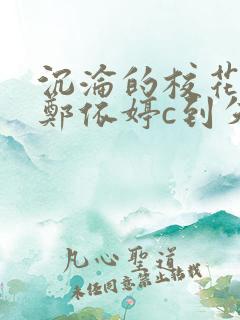 沉淪的校花
鄭依婷c到失
凡心聖道
未经同意禁止转载